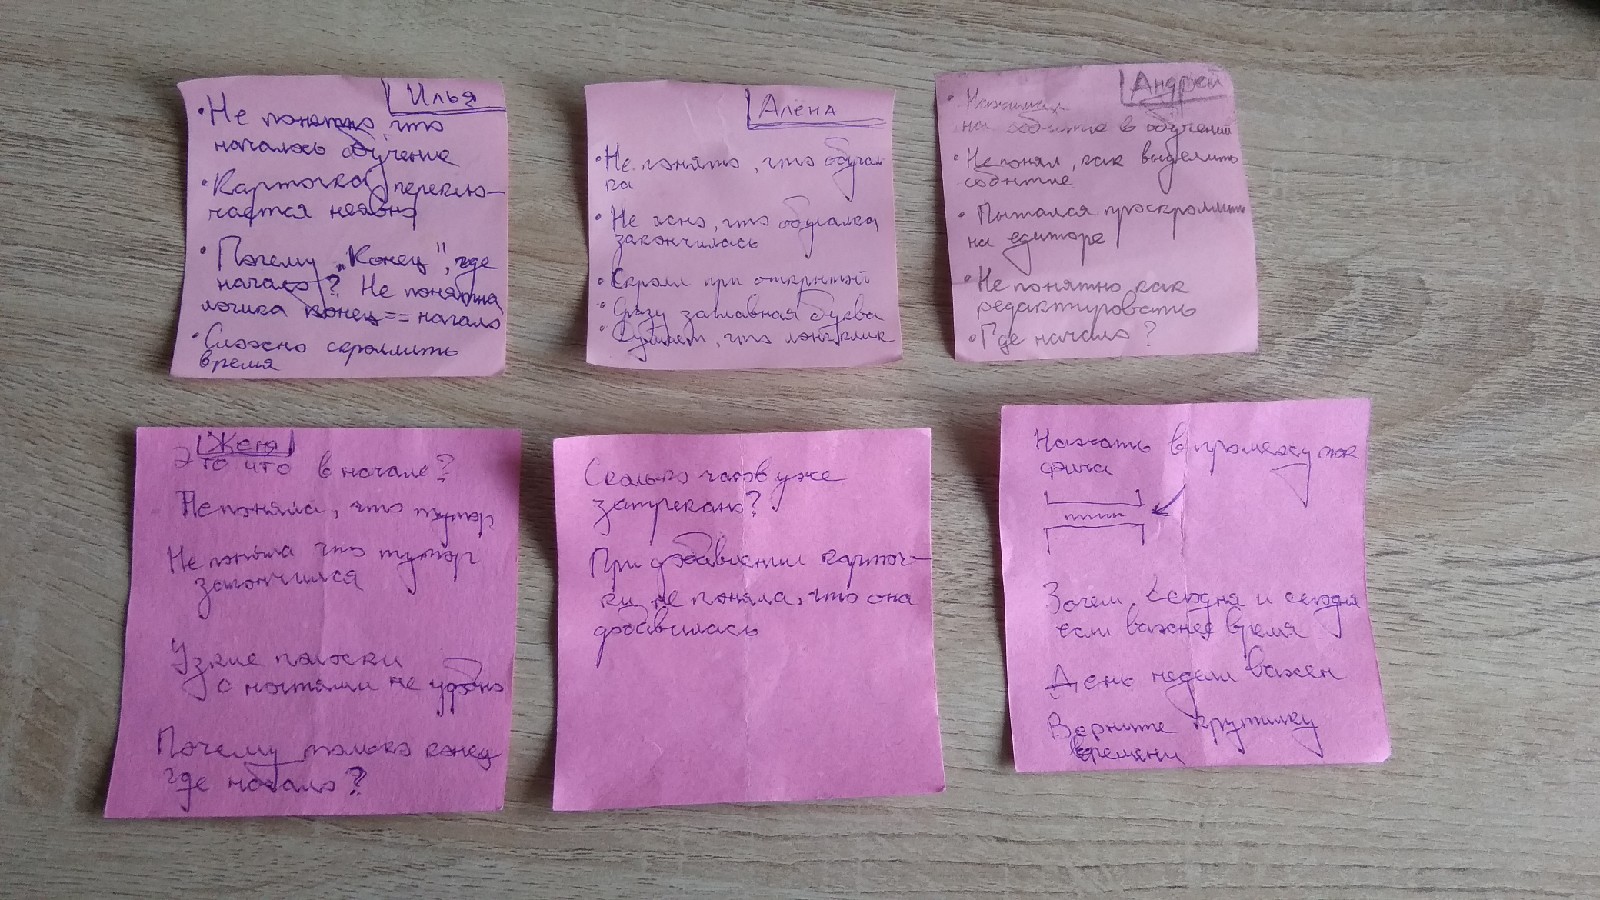 Илья
• Не понятно, что
началось обучение
• Карточка переклю-
чается неявно
• Почему "Конец", где
начало? Не понятна
логика конец == начало
• Сложно скроллить
время
Алёна
• Не понято, что обучал
ка
• Не ясно, что обучалка
закончилась
• Скролл при открытой
• Сразу заглавная буква
• что лонг клик
Андрей
• Нажимал
на событие в обучении
• Не понял, как выделить
событие
• Пытался проскроллить
на едиторе
• Не понятно как
редактировать
• Где начало?
Женя
Это что в начале?
Не поняла, что тутор
Не поняла что тутор
закончился
Узкие полоски
с ногтями не удобно
Почему только конец
где начало?
Сколько часов уже
затрекано?
При добавлении карточ-
ки не поняла, что она
добавилась
Нажать в промежуток
Зачем сегодня и сегодня
если важнее время
День недели важен
Верните крутилку
времени